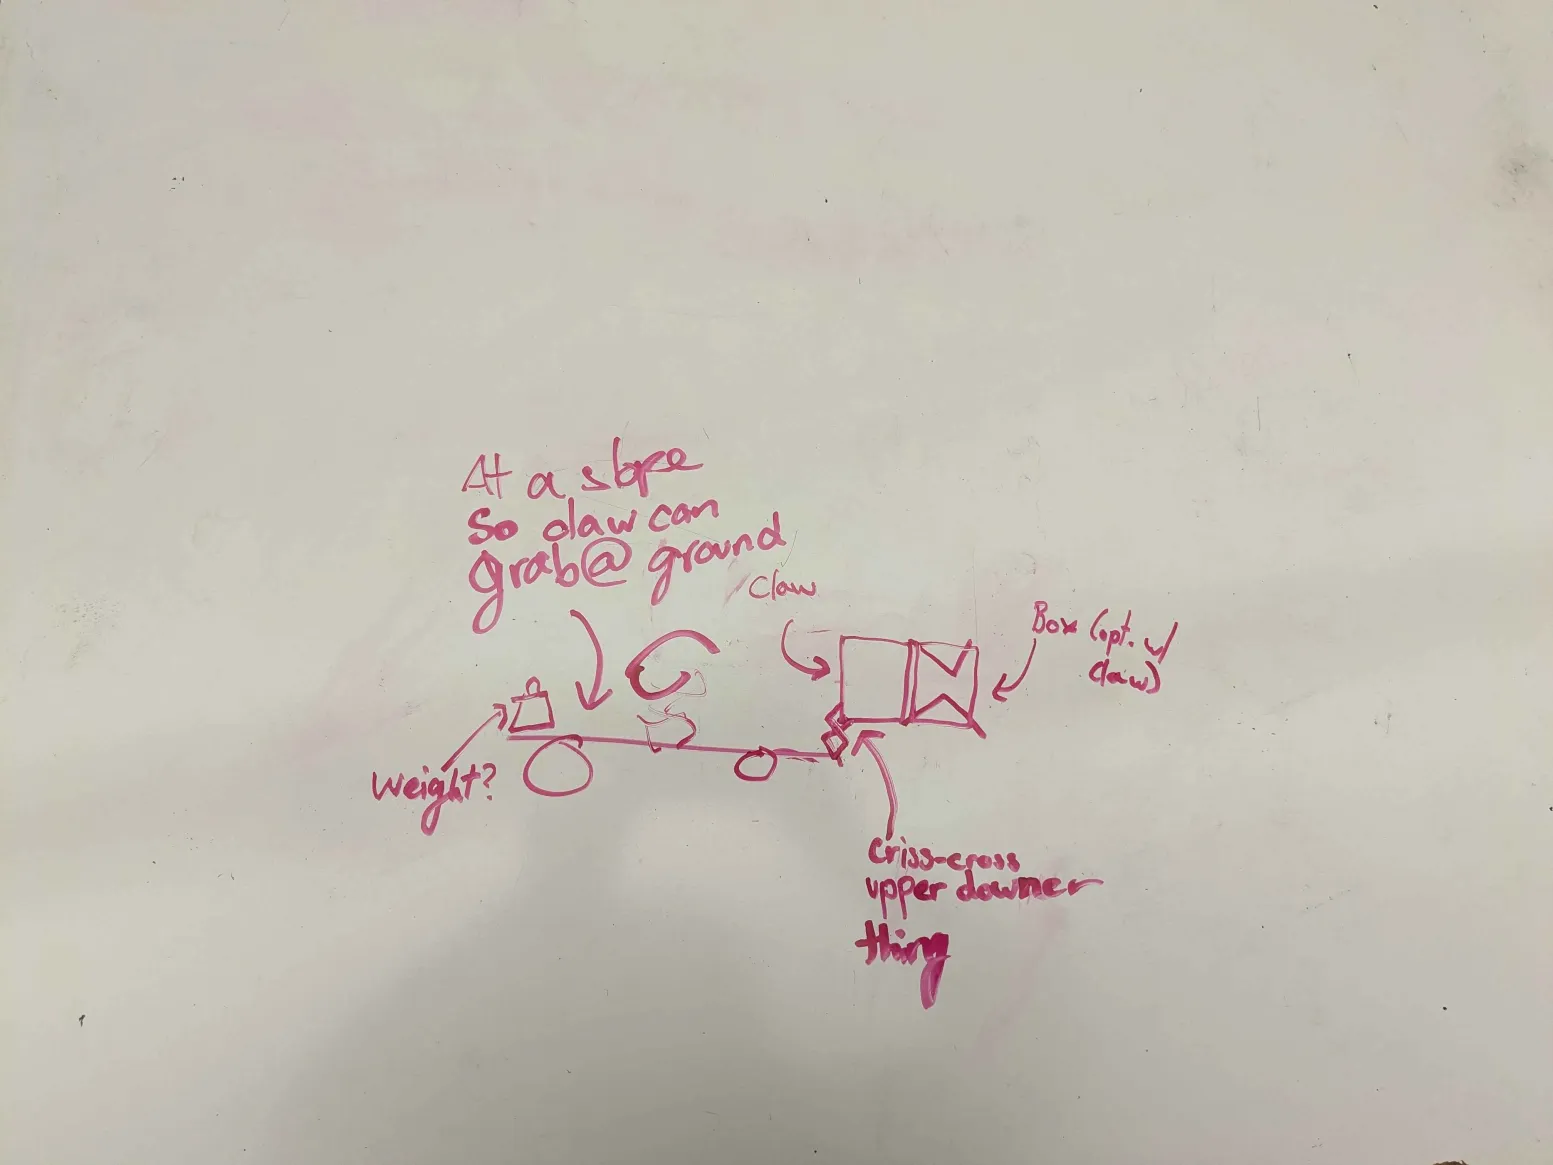 At a slope
So claw can
grab@ ground
Claw
Box (opt. w/
claw)
Weight?
Criss-cross
upper downer
thing